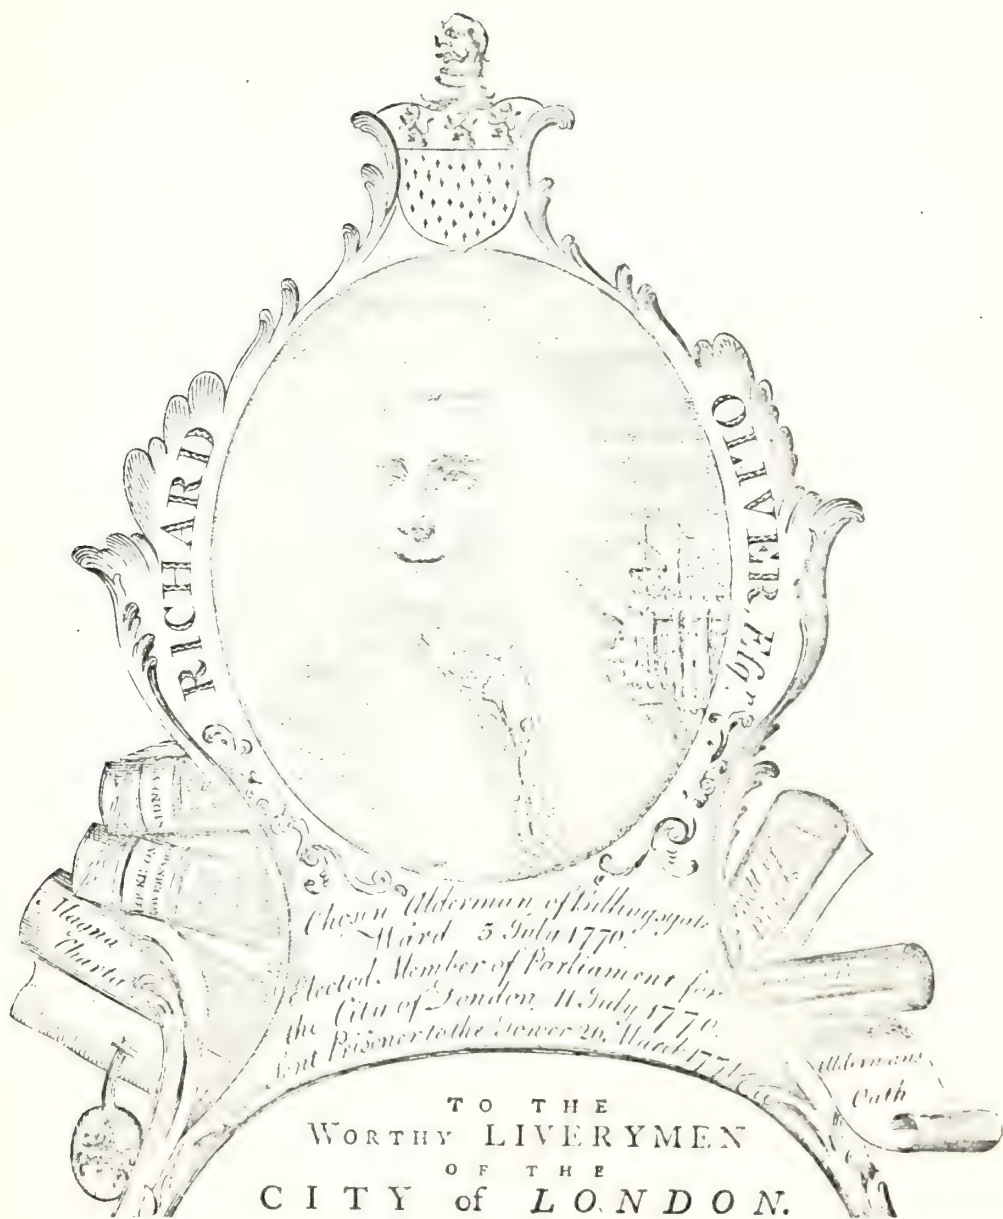 RICHARD
OLIVER, Esqr.
SIDNEY
LOCKE ON
GOVERNM
Magna
Charta
Chosen Alderman of Billingsgate
Ward 5 July 1770.
Elected Member of Parliament for
the City of London 11 July 1770.
Sent Prisoner to the Tower 26 March 1771.
Aldermans
Oath
TO THE
WORTHY LIVERYMEN
OF THE
CITY of LONDON.